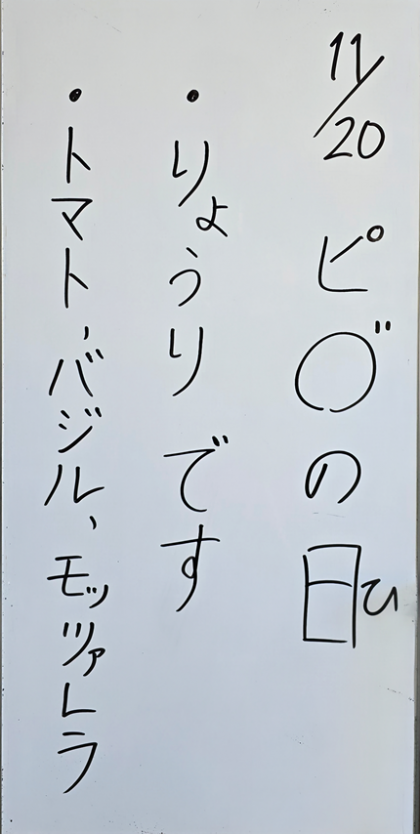 11/20 ピ〇゛の日ひ
・りょうりです
・トマト、バジル、モッツァレラ